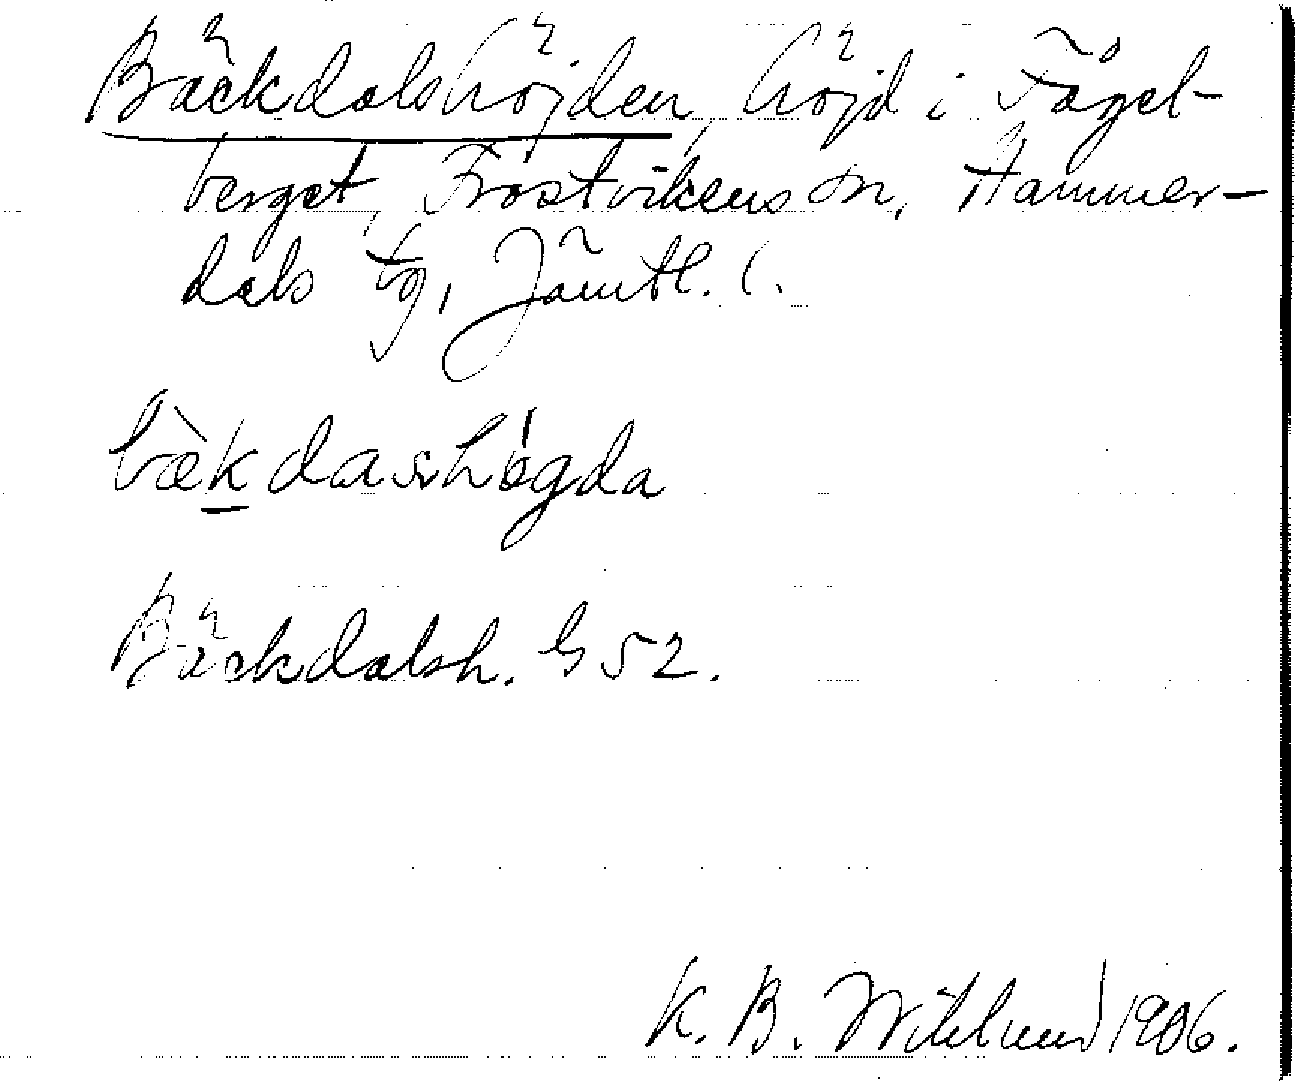 Bäckdalshöjden, höjd i Fågel-
berget, Frostvikens sn, Hammer-
dals tg, Jämtl. l.
bækdashøgda
Bäckdalsh. G 52.
K. B. Wiklund 1906.